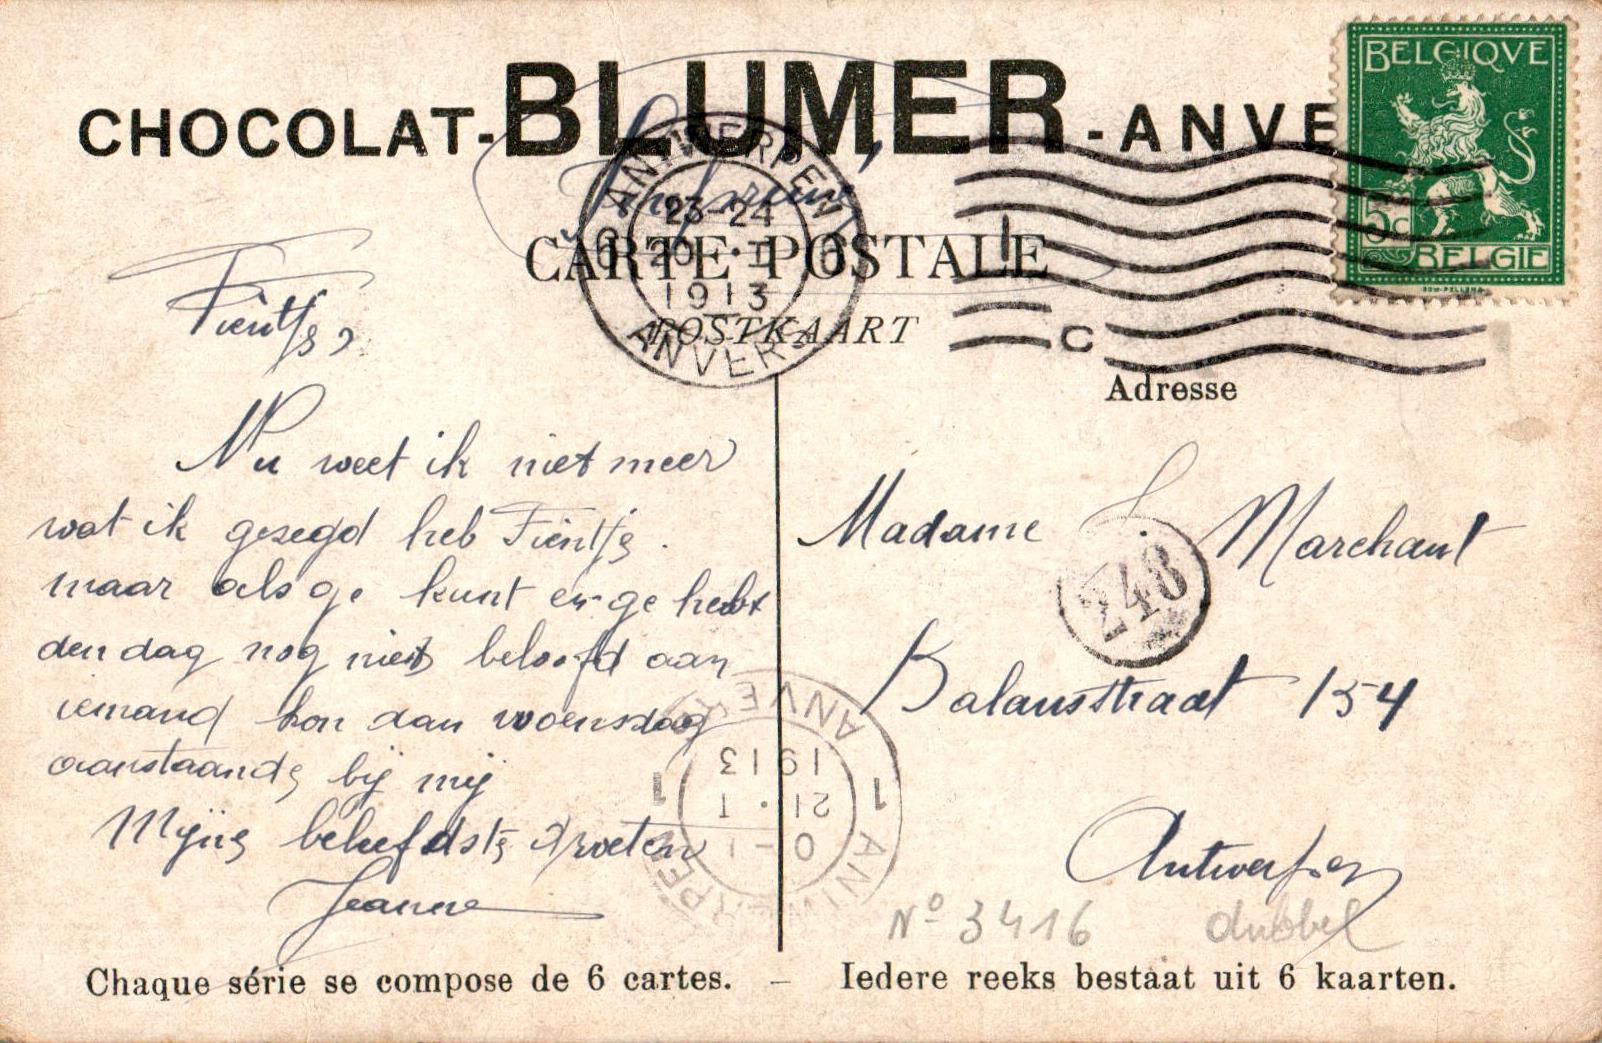 CHOCOLAT-BLUMER-ANVE
BELGIQVE
5c
BELGIE
ANTWERPEN
6 23-24 6
20 · I
1913
ANVERS
CARTE POSTALE
POSTKAART
C
Adresse
Fientje,
Nu weet ik niet meer
wat ik gesegd heb Fientje.
maar als ge kunt en ge hebt
den dag nog niet beloofd aan
iemand kon dan woensdag
aanstaande bij mij
Mijne beliefdste Groeten
Jeanne
Madame Marchant
248
Balansstraat 154
Antwerpen
1 ANTWERPEN 1
0-1
21 · I
1913
ANVERS
No 3416 dubbel
Chaque série se compose de 6 cartes. – Iedere reeks bestaat uit 6 kaarten.